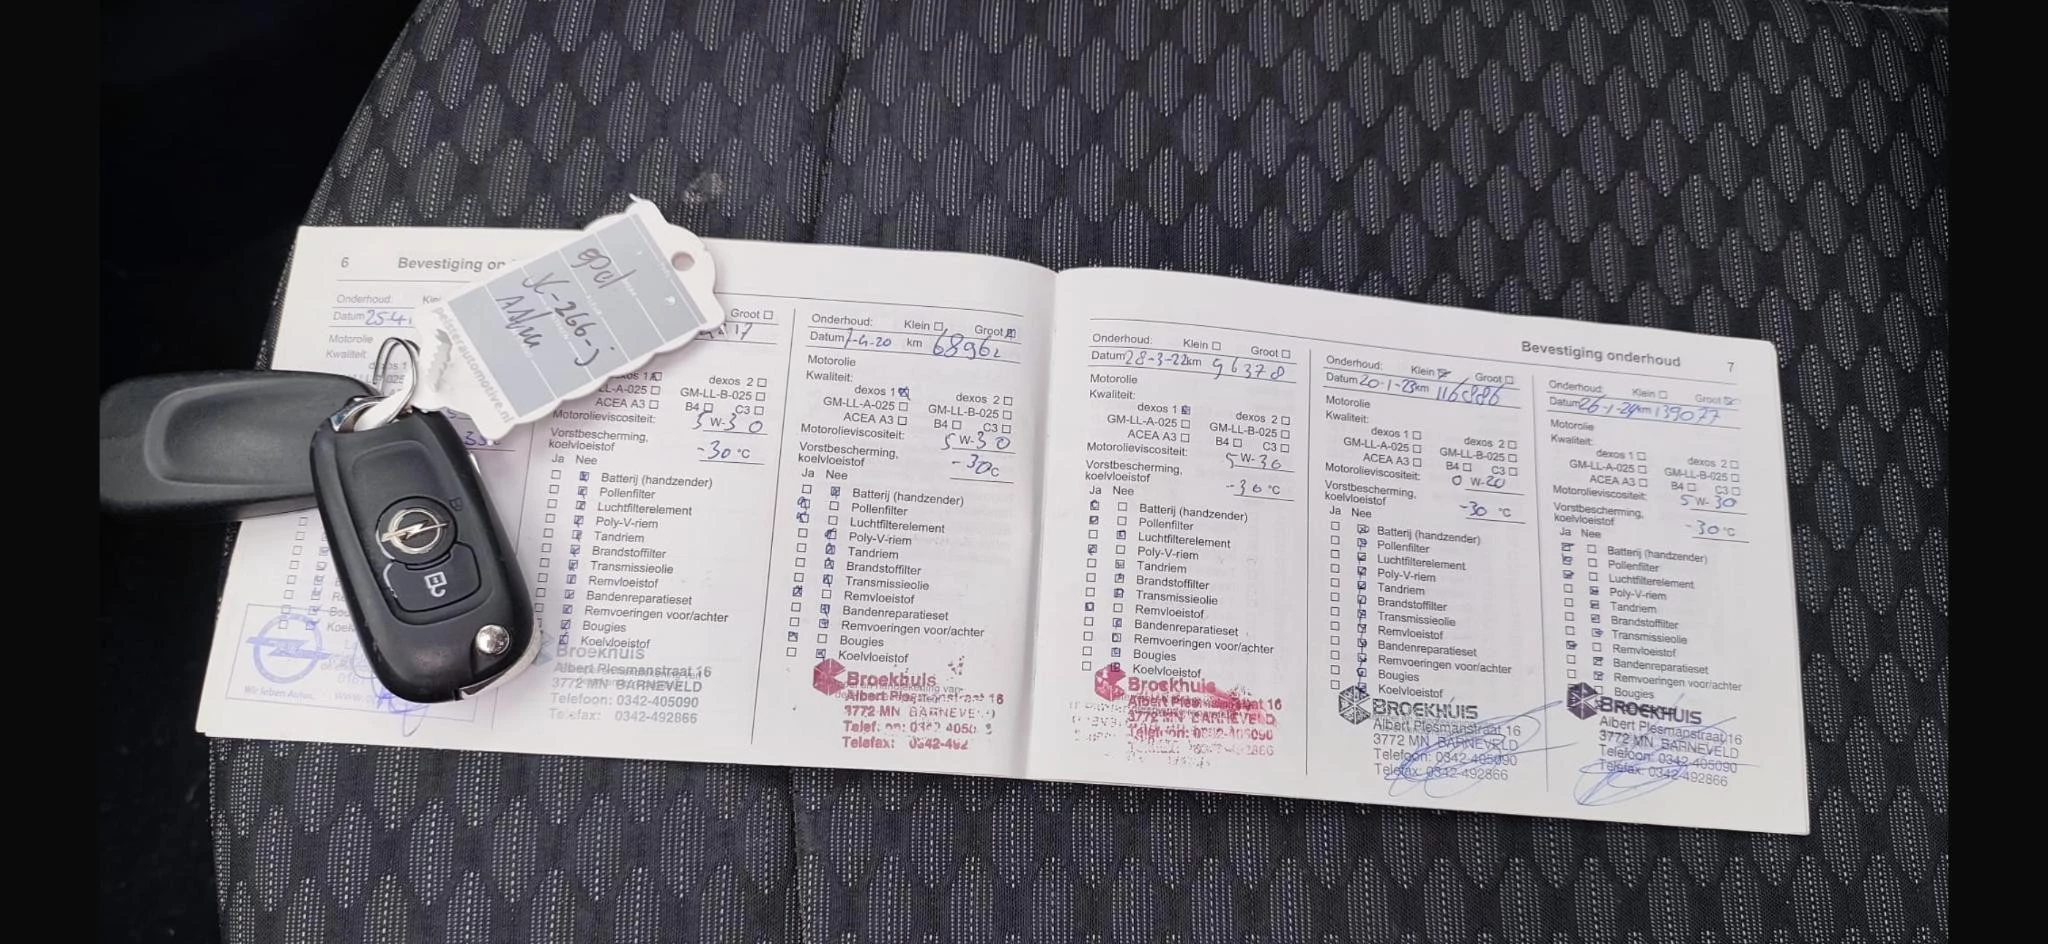 6
Bevestiging on
opel
JC-266-J
Astra
pelsterautomotive.nl
Onderhoud:
Datum 25-4
Motorolie
Kwaliteit:
dexos 1
Groot ☐
17
dexos 1 ☒ dexos 2 ☐
LL-A-025 ☐ GM-LL-B-025 ☐
ACEA A3 ☐ B4 ☐ C3 ☐
Motorolieviscositeit: 5 W-30
Vorstbescherming,
koelvloeistof -30 °C
Ja Nee
☐ ☒ Batterij (handzender)
☐ ☒ Pollenfilter
☐ ☒ Luchtfilterelement
☐ ☒ Poly-V-riem
☐ ☒ Tandriem
☐ ☒ Brandstoffilter
☐ ☒ Transmissieolie
☐ ☒ Remvloeistof
☐ ☒ Bandenreparatieset
☐ ☒ Remvoeringen voor/achter
☐ ☒ Bougies
☐ ☒ Koelvloeistof
Wir leben Autos.
Broekhuis
Albert Plesmanstraat 16
3772 MN BARNEVELD
Telefoon: 0342-405090
Telefax: 0342-492866
Onderhoud: Klein ☐ Groot ☒
Datum 7-4-20 km 68962
Motorolie
Kwaliteit:
dexos 1 ☒ dexos 2 ☐
GM-LL-A-025 ☐ GM-LL-B-025 ☐
ACEA A3 ☐ B4 ☐ C3 ☐
Motorolieviscositeit: 5 W-30
Vorstbescherming,
koelvloeistof -30c
Ja Nee
Batterij (handzender)
Pollenfilter
Luchtfilterelement
Poly-V-riem
Tandriem
Brandstoffilter
Transmissieolie
Remvloeistof
Bandenreparatieset
Remvoeringen voor/achter
Bougies
Koelvloeistof
Broekhuis
Albert Plesmanstraat 16
3772 MN BARNEVE
Telefax: 0342-492
Bevestiging onderhoud 7
Onderhoud: Klein ☐ Groot ☐
Datum 28-3-22 km 96378
Motorolie
Kwaliteit:
dexos 1 ☒ dexos 2 ☐
GM-LL-A-025 ☐ GM-LL-B-025 ☐
ACEA A3 ☐ B4 ☐ C3 ☐
Motorolieviscositeit: 5 W-30
Vorstbescherming,
koelvloeistof -30 °C
Ja Nee
Batterij (handzender)
Pollenfilter
Luchtfilterelement
Poly-V-riem
Tandriem
Brandstoffilter
Transmissieolie
Remvloeistof
Bandenreparatieset
Remvoeringen voor/achter
Bougies
Koelvloeistof
Broekhuis
Albert Plesmanstraat 16
3772 MN BARNEVELD
Telefoon: 0342-405090
Onderhoud: Klein ☒ Groot ☐
Datum 20-1-23 km 116886
Motorolie
Kwaliteit:
dexos 1 ☐ dexos 2 ☐
GM-LL-A-025 ☐ GM-LL-B-025 ☐
ACEA A3 ☐ B4 ☐ C3 ☐
Motorolieviscositeit: 0 W-20
Vorstbescherming,
koelvloeistof -30 °C
Ja Nee
Batterij (handzender)
Pollenfilter
Luchtfilterelement
Poly-V-riem
Tandriem
Brandstoffilter
Transmissieolie
Remvloeistof
Bandenreparatieset
Remvoeringen voor/achter
Bougies
Koelvloeistof
BROEKHUIS
Albert Plesmanstraat 16
3772 MN BARNEVELD
Telefoon: 0342-405090
Telefax: 0342-492866
Onderhoud: Klein ☐ Groot ☒
Datum 26-1-24 km 139077
Motorolie
Kwaliteit:
dexos 1 ☐ dexos 2 ☐
GM-LL-A-025 ☐ GM-LL-B-025 ☐
ACEA A3 ☐ B4 ☐ C3 ☐
Motorolieviscositeit: 5 W-30
Vorstbescherming,
koelvloeistof -30 °C
Ja Nee
Batterij (handzender)
Pollenfilter
Luchtfilterelement
Poly-V-riem
Tandriem
Brandstoffilter
Transmissieolie
Remvloeistof
Bandenreparatieset
Remvoeringen voor/achter
Bougies
BROEKHUIS
Albert Plesmanstraat 16
3772 MN BARNEVELD
Telefoon: 0342-405090
Telefax: 0342-492866